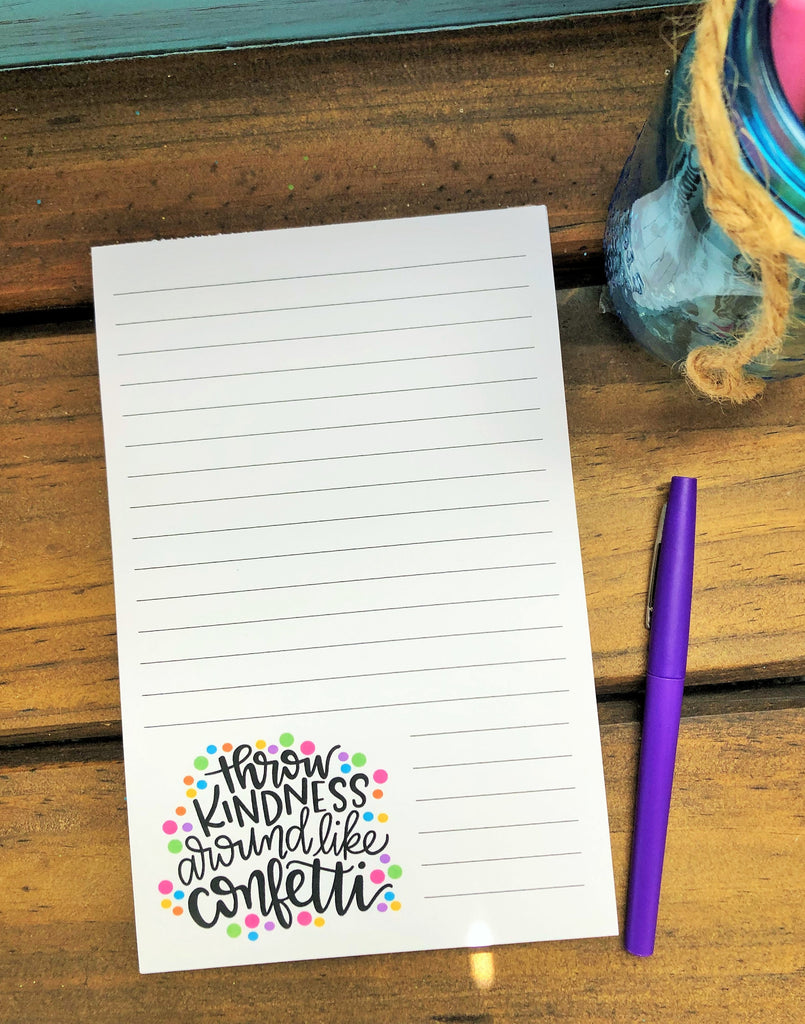 throw
KINDNESS
around like
confetti